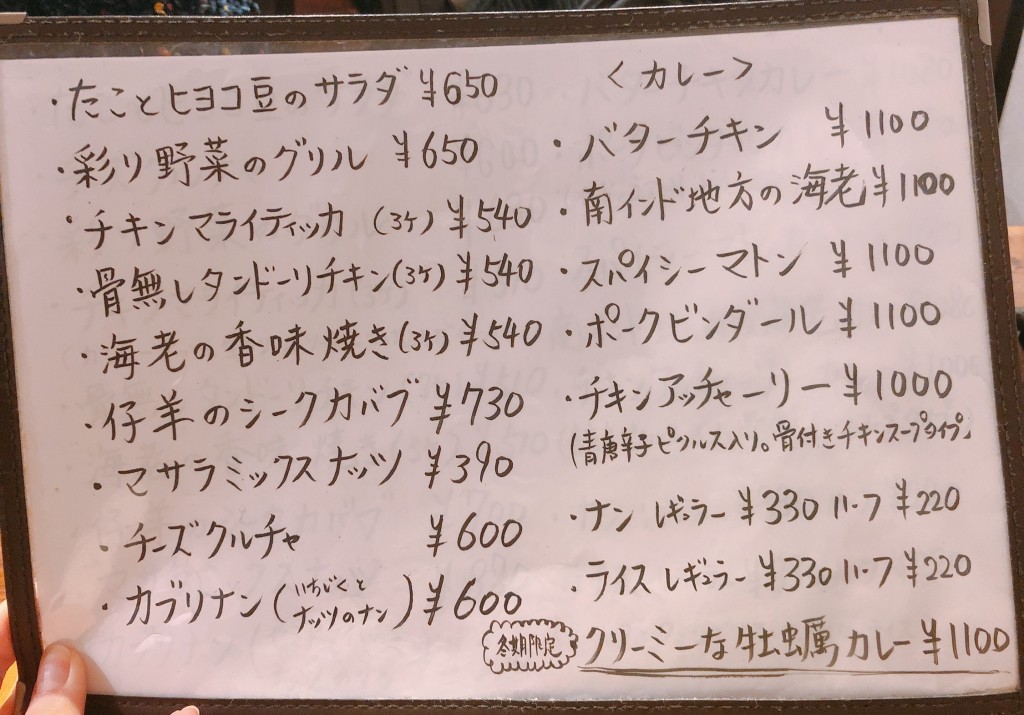 ・たことヒヨコ豆のサラダ ¥650
・彩り野菜のグリル ¥650
・チキンマライティッカ (3ケ) ¥540
・骨無しタンドーリチキン(3ケ) ¥540
・海老の香味焼き(3ケ) ¥540
・仔羊のシークカバブ ¥730
・マサラミックスナッツ ¥390
・チーズクルチャ ¥600
・カブリナン(いちじくと
ナッツのナン) ¥600
<カレー>
・バターチキン ¥1100
・南インド地方の海老 ¥1100
・スパイシーマトン ¥1100
・ポークビンダール ¥1100
・チキンアッチャーリー ¥1000
(青唐辛子ピクルス入り。骨付きチキンスープタイプ」
・ナン レギュラー ¥330 ハーフ ¥220
・ライス レギュラー ¥330 ハーフ ¥220
冬期限定 クリーミーな牡蠣カレー ¥1100